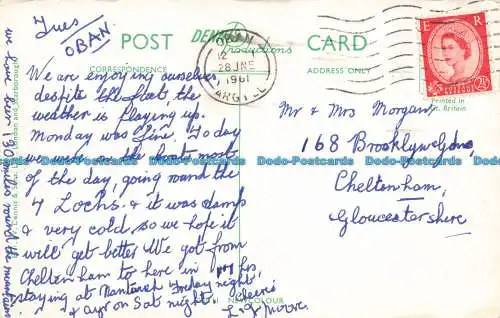 Tues
OBAN
POST
CARD
CORRESPONDENCE
ADDRESS ONLY
Productions
OBAN
28 JNE
1961
ARGYLL
E R
POSTAGE REVENUE
2½D
Printed in
Gt. Britain
We are enjoying ourselves
despite the fact the
weather is playing up.
Monday was fine. To day
we were on the boat most
of the day, going round the
4 Lochs. & it was damp
& very cold, so we hope it
will get better We got from
Cheltenham to here in hrs,
staying at Nantwich Friday night,
& Ayr on Sat night. Cheerio
we have been 130 miles round the mountains
Mr & Mrs Morgan,
168 Brooklyn Gdns,
Cheltenham,
Gloucestershire
Dennis & Sons Ltd., London and Scarborough
COLOUR
Dodo-Postcards